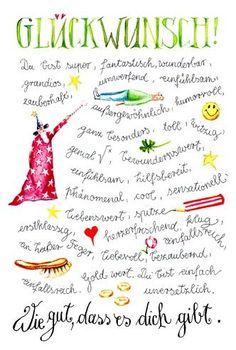 GLÜCKWUNSCH!
Du bist super, fantastisch, wunderbar,
grandios, umwerfend, einfühlsam,
zauberhaft, außergewöhnlich, humorvoll,
ganz besonders, toll, witzig,
genial √, bewundernswert,
einfühlsam, hilfsbereit,
phänomenal, cool, sensationell,
liebenswert, spitze,
erstklassig, herzerfrischend, klug,
ein heißer Feger, einfallsreich,
liebevoll, bezaubernd,
einfallsreich, Gold wert. Du bist einfach
unersetzlich.
Wie gut, dass es dich gibt.